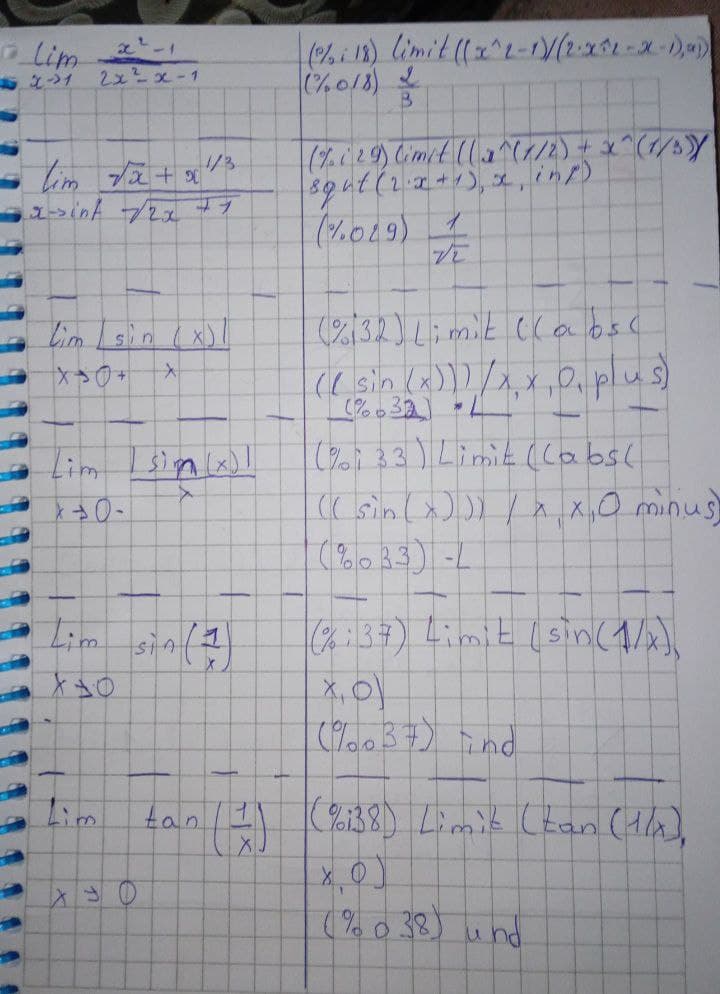 lim x²-1
x→1 2x²-x-1
(%i18) limit((x^2-1)/(2·x^2-x-1),x,1)
(%o18) 2
3
lim √x + x^1/3
x→inf √2x +1
(%i29) limit((x^(1/2) + x^(1/3))/
sqrt(2·x+1), x, inf)
(%o29) 1
√2
lim |sin (x)|
x→0+ x
(%i32) Limit ((abs(
((sin(x)))/x, x, 0, plus)
(%o32) L
Lim |sin(x)|
x→0- x
(%i33) Limit ((abs(
((sin(x))) / x, x, 0 minus)
(%o33) -L
Lim sin(1/x)
x→0
(%i37) Limit (sin(1/x),
x, 0)
(%o37) ind
Lim tan (1/x)
x→0
(%i38) Limit (tan (1/x),
x, 0)
(%o38) und